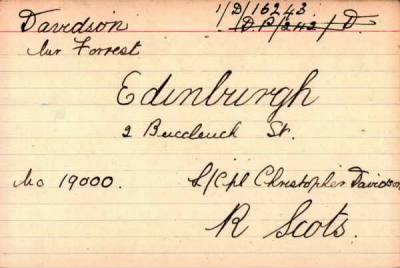 Davidson 1/D/16243
Mr Forrest D.P/242/D.
Edinburgh
2 Buccleuch St.
No 19000. L/Cpl Christopher Davidson
R Scots.